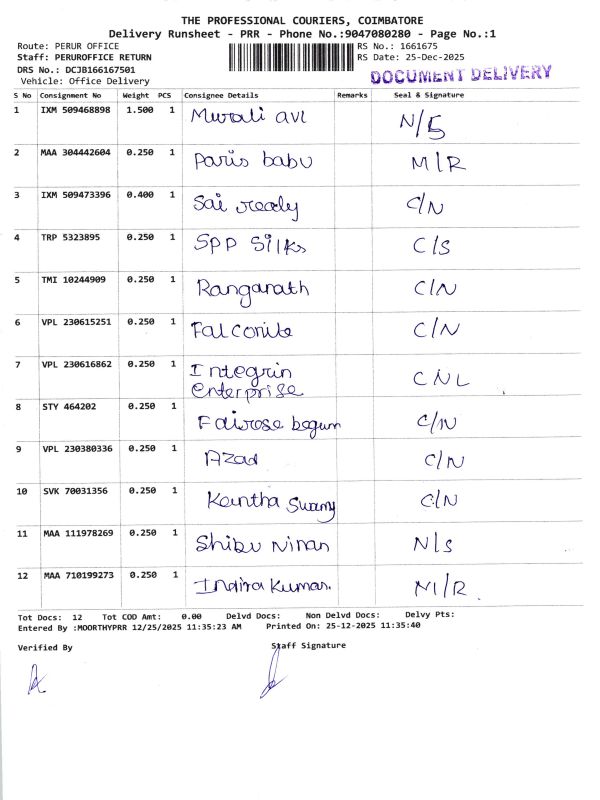 THE PROFESSIONAL COURIERS, COIMBATORE
Delivery Runsheet - PRR - Phone No.:9047080280 - Page No.:1
Route: PERUR OFFICE RS No.: 1661675
Staff: PERUROFFICE RETURN RS Date: 25-Dec-2025
DRS No.: DCJB166167501
Vehicle: Office Delivery DOCUMENT DELIVERY
S No Consignment No Weight PCS Consignee Details Remarks Seal & Signature
1 IXM 509468898 1.500 1 Murali avl N/S
2 MAA 304442604 0.250 1 Paris babu M/R
3 IXM 509473396 0.400 1 Sai ready C/N
4 TRP 5323895 0.250 1 SPP Silks C/S
5 TMI 10244909 0.250 1 Ranganath C/N
6 VPL 230615251 0.250 1 Falconite C/N
7 VPL 230616862 0.250 1 Integrin CNL
Enterprise
8 STY 464202 0.250 1 Fairose begum C/N
9 VPL 230380336 0.250 1 Azad C/N
10 SVK 70031356 0.250 1 Swamy C/N
11 MAA 111978269 0.250 1 Shibu Ninan N/S
12 MAA 710199273 0.250 1 Indira Kumar. M/R.
Tot Docs: 12 Tot COD Amt: 0.00 Delvd Docs: Non Delvd Docs: Delvy Pts:
Entered By :MOORTHYPRR 12/25/2025 11:35:23 AM Printed On: 25-12-2025 11:35:40
Verified By Staff Signature